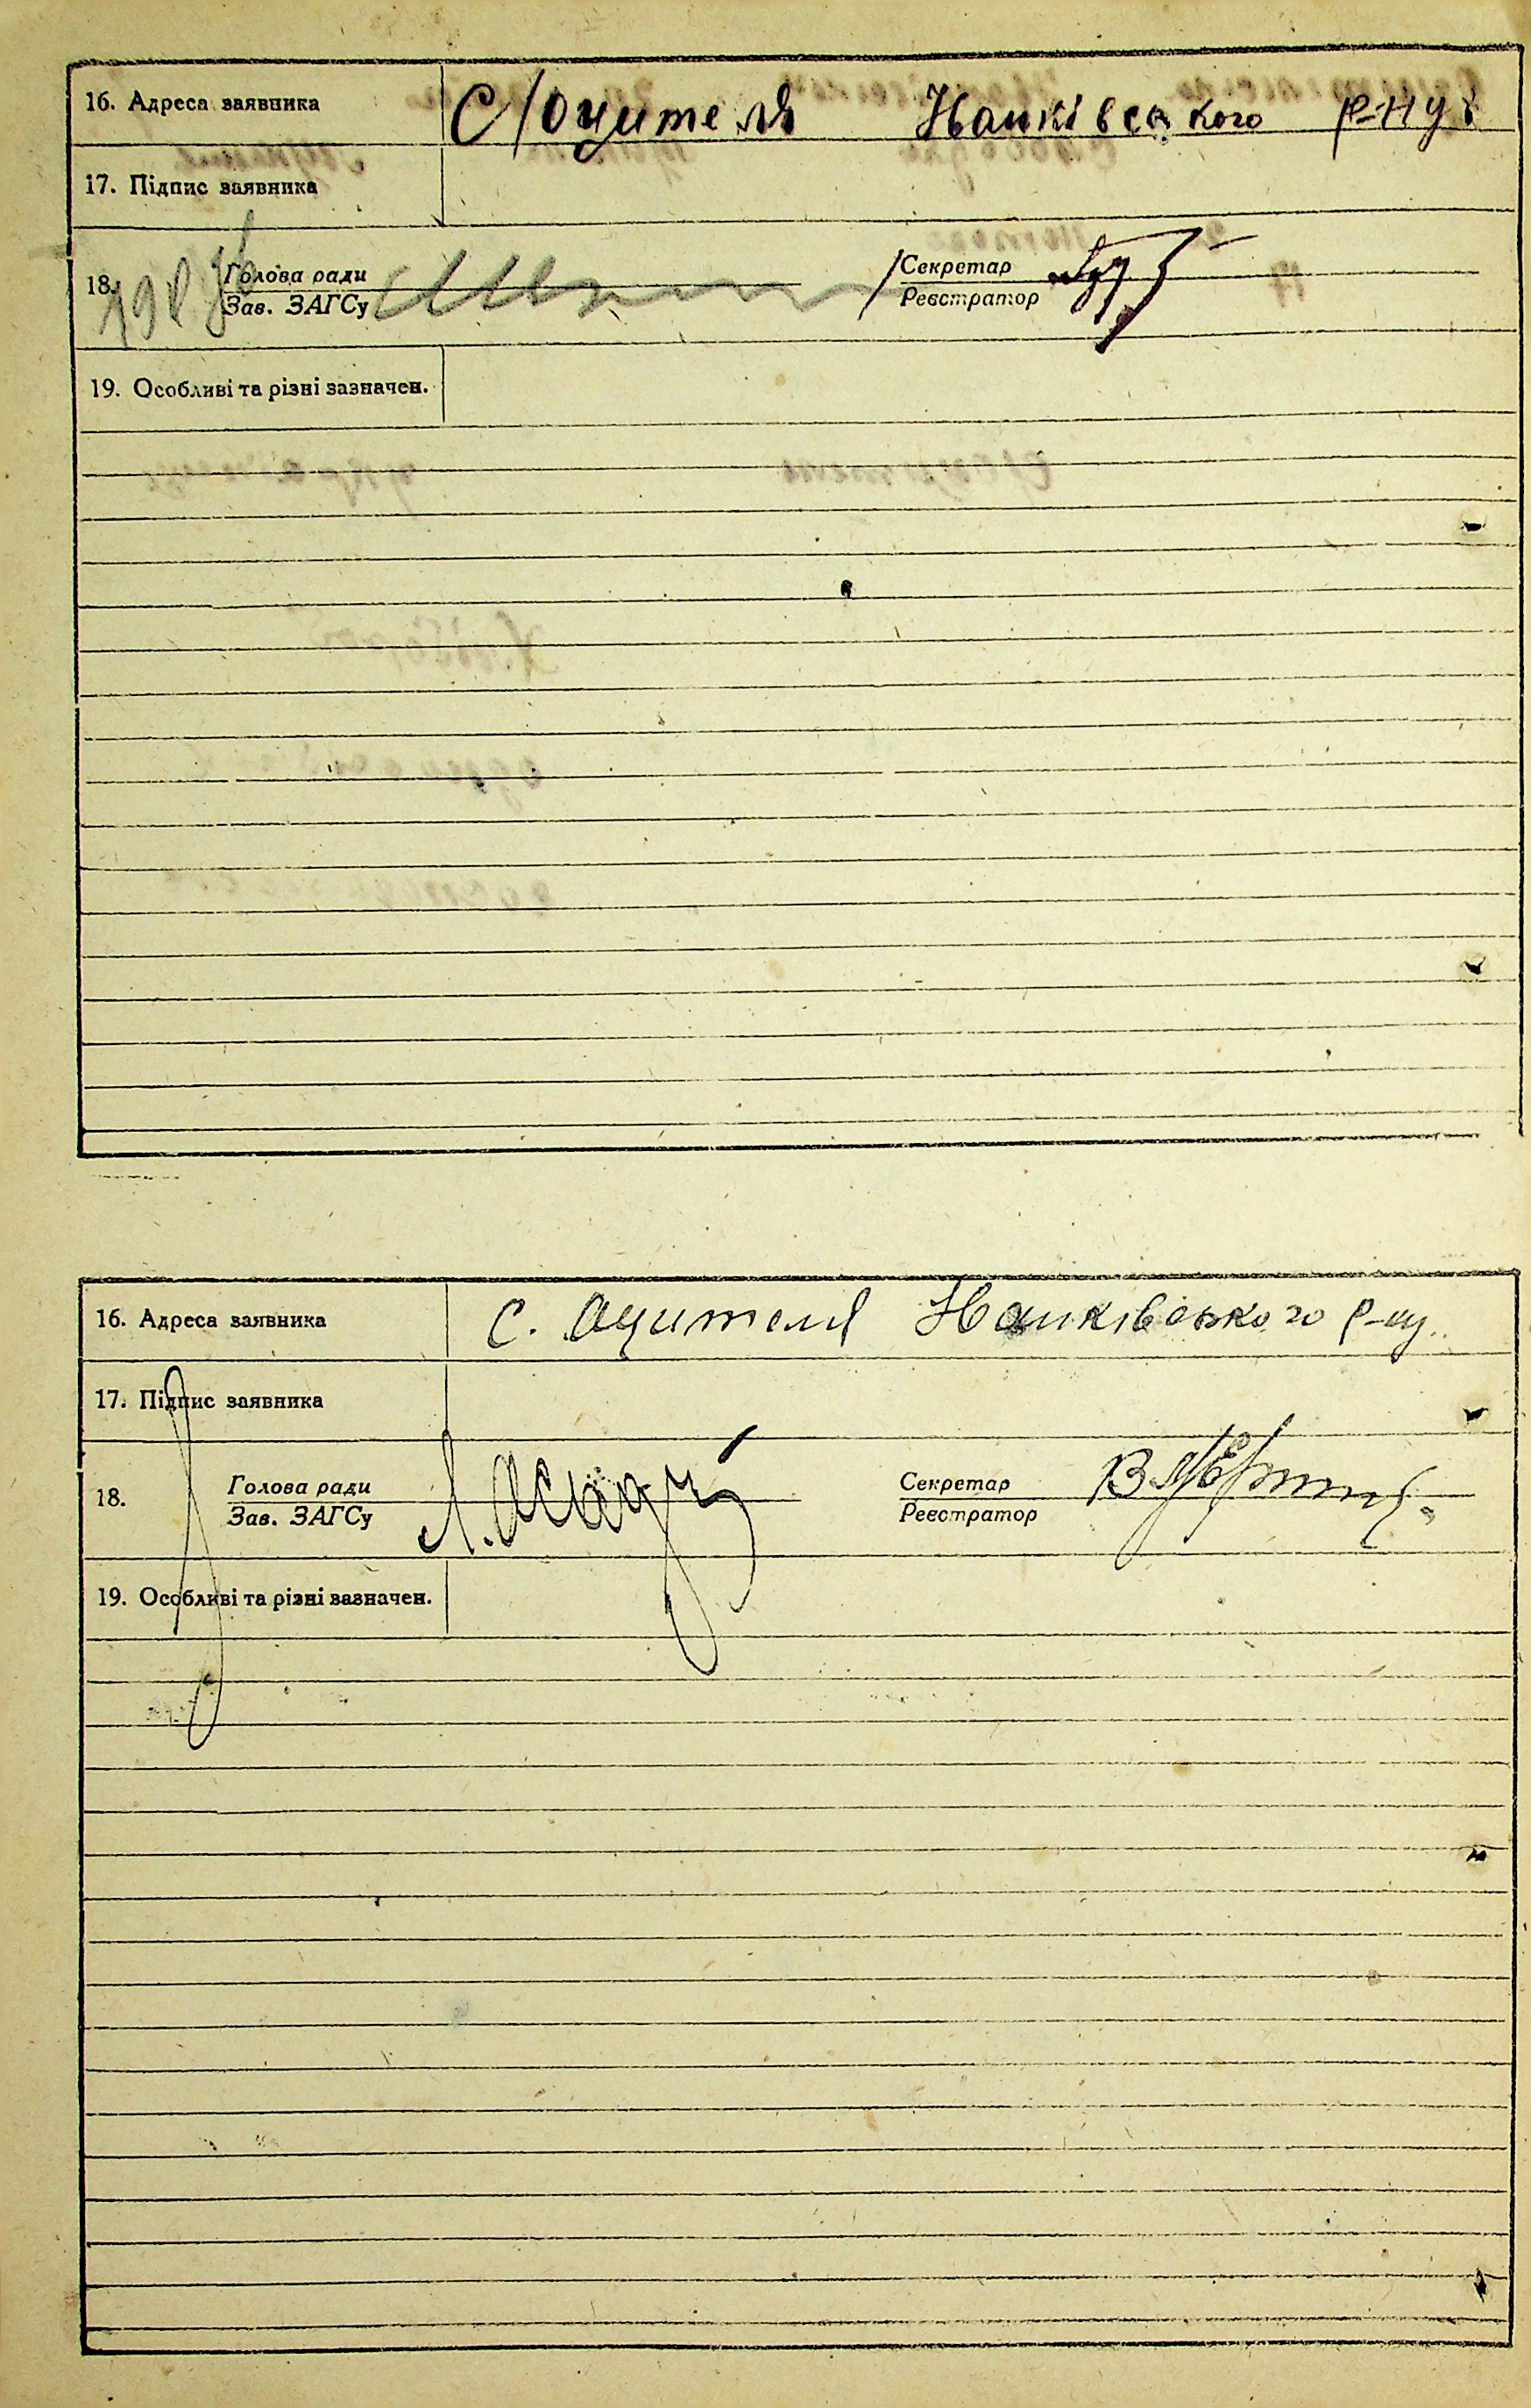 16. Адреса заявника С/Оцителя Нанківского р-ну
17. Підпис заявника
18. Голова ради Секретар
Зав. ЗАГСу Реєстратор
19. Особливі та різні зазначен.
16. Адреса заявника с. Оцителя Нанківського р-ну.
17. Підпис заявника
18. Голова ради Секретар
Зав. ЗАГСу Реєстратор
19. Особливі та різні зазначен.